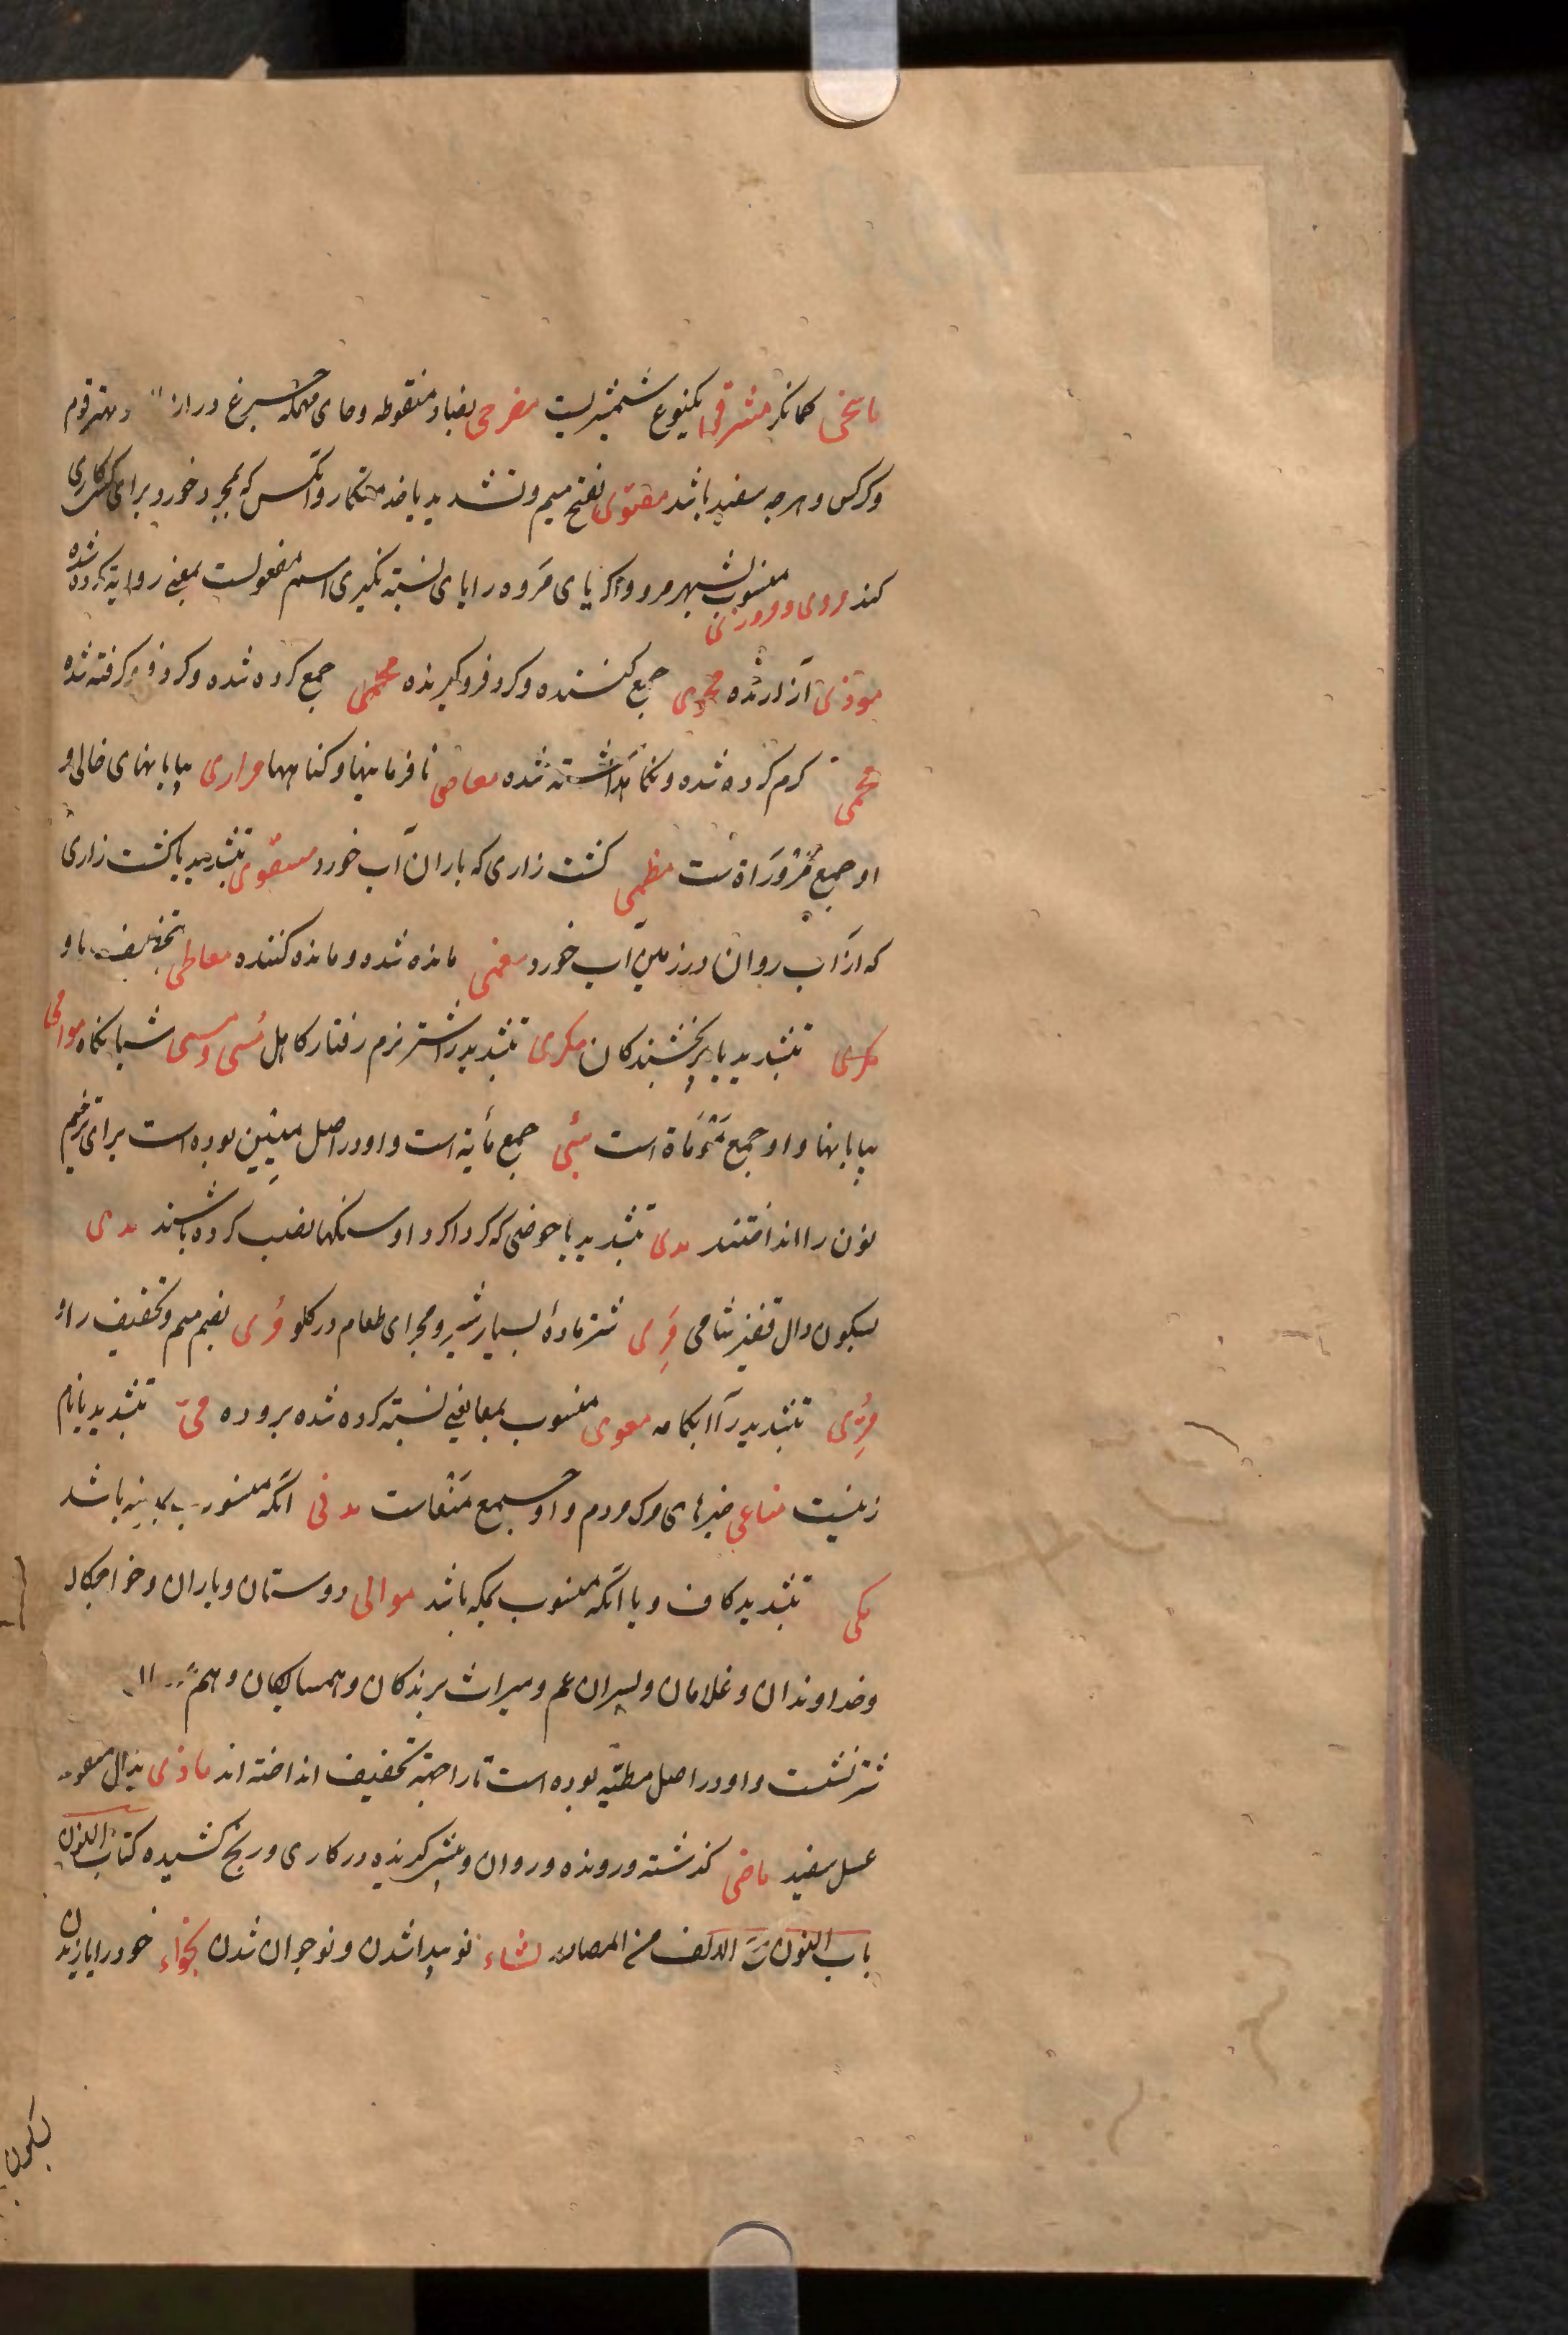 ماسخی کمانگر مشرقی یکنوع شمشیریست مضرحی بضاد منقوطه و حای مهمله چرغ دراز و مهتر قوم
و کرکس و هرچه سفید باشد مقتوی بفتح میم و تشدید یا خدمتکار و آنکس که بمجرد خورد برای کسی کاری
کند مروی و مروزی منسوب بشهر مرو و اگر یای مروه را یای نسبة نگیری اسم مفعولست بمعنی روایة کرده شده
موذی آزار شده محوی جمع کننده و گرد فرو گیرنده جمع کرده شده و گرد فرو گرفته شده
محمی گرم کرده شده و نگاهداشته شده معاصی نافرمانیها و گناهها مراری بیابانهای خالی و
او جمع مروراة است مظمی کشت زاری که باران آب خورد مسقوی بتشدید یا کشت زاری
که از آب روان در زمین آب خورد معیی مانده شده و مانده کننده معاطی بتخفیف یا و
بتشدید یا بخشندگان مکری بتشدید را شتر نرم رفتار کاهل مُسی و مسی شبانگاه موامی
بیابانها و او جمع موماة است مئی جمع مایة است و او در اصل مئین بوده است برای ترخیم
نون را انداختند مدی بتشدید یا حوضی که گرداگرد او سنگها نصب کرده باشند مدی
بسکون دال قفیز شامی مَرِی شتر مادۀ بسیار شیر و مجرای طعام در گلو مُری بضم میم و تخفیف را و
مُرّی بتشدید را آبکامه معوی منسوب بمعا یعنی نسبة کرده شده بروده میّ بتشدید یا نام
زنیست مناعی خبرهای مرگ مردم و او جمع منعاست مدنی آنکه منسوب بمدینه باشد
مکی بتشدید کاف و یا آنکه منسوب بمکه باشد موالی دوستان و یاران و خواجگان
و خداوندان و غلامان و پسران عم و میراث برندگان و همسایگان و هم
شتر نشست و او در اصل مطیّه بوده است تا را جهة تخفیف انداخته اند ماذی بذال منقوطه
عسل سفید ماضی گذشته و رونده و روان و پیش گیرنده در کاری و رنج کشیده کتاب النون
باب النون مع الالف من المصادر نشاء نو پیدا شدن و نوجوان شدن نجواء خود را یازیدن
بکون